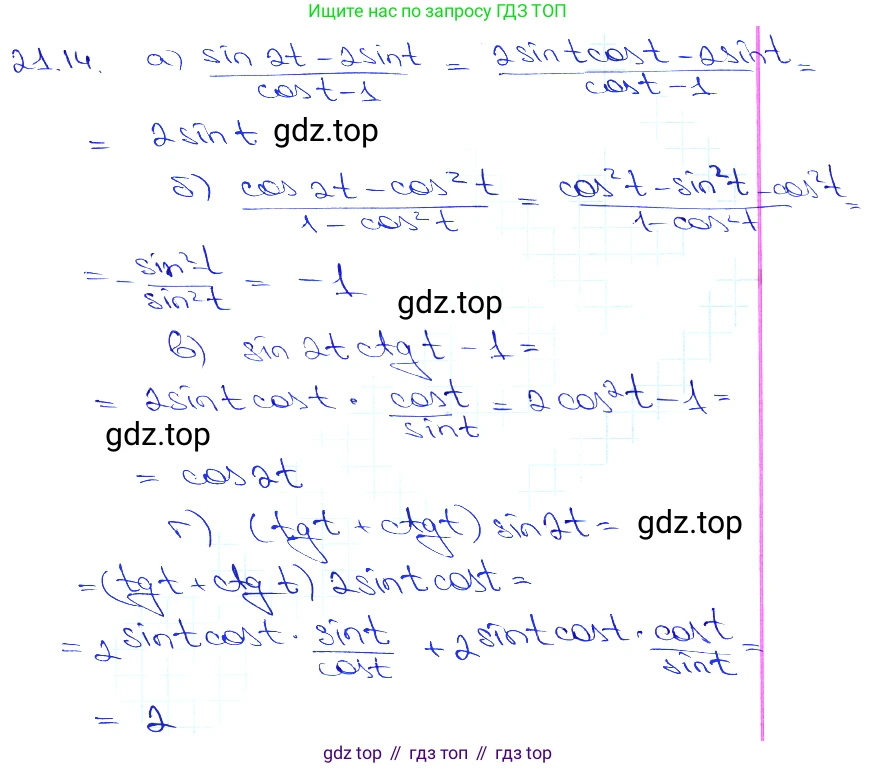 Ищите нас по запросу ГДЗ ТОП
21.14. а) (sin 2t - 2sint)/(cost - 1) = (2sintcost - 2sint)/(cost - 1) =
= 2sint gdz.top
б) (cos 2t - cos²t)/(1 - cos²t) = (cos²t - sin²t - cos²t)/(1 - cos²t) =
= - sin²t/sin²t = -1
gdz.top
в) sin 2t ctgt - 1 =
= 2sintcost · cost/sint = 2cos²t - 1 =
gdz.top
= cos2t
г) (tgt + ctgt) sin2t = gdz.top
= (tgt + ctgt) 2sintcost =
= 2sintcost · sint/cost + 2sintcost · cost/sint =
= 2
gdz top // гдз топ // гдз топ